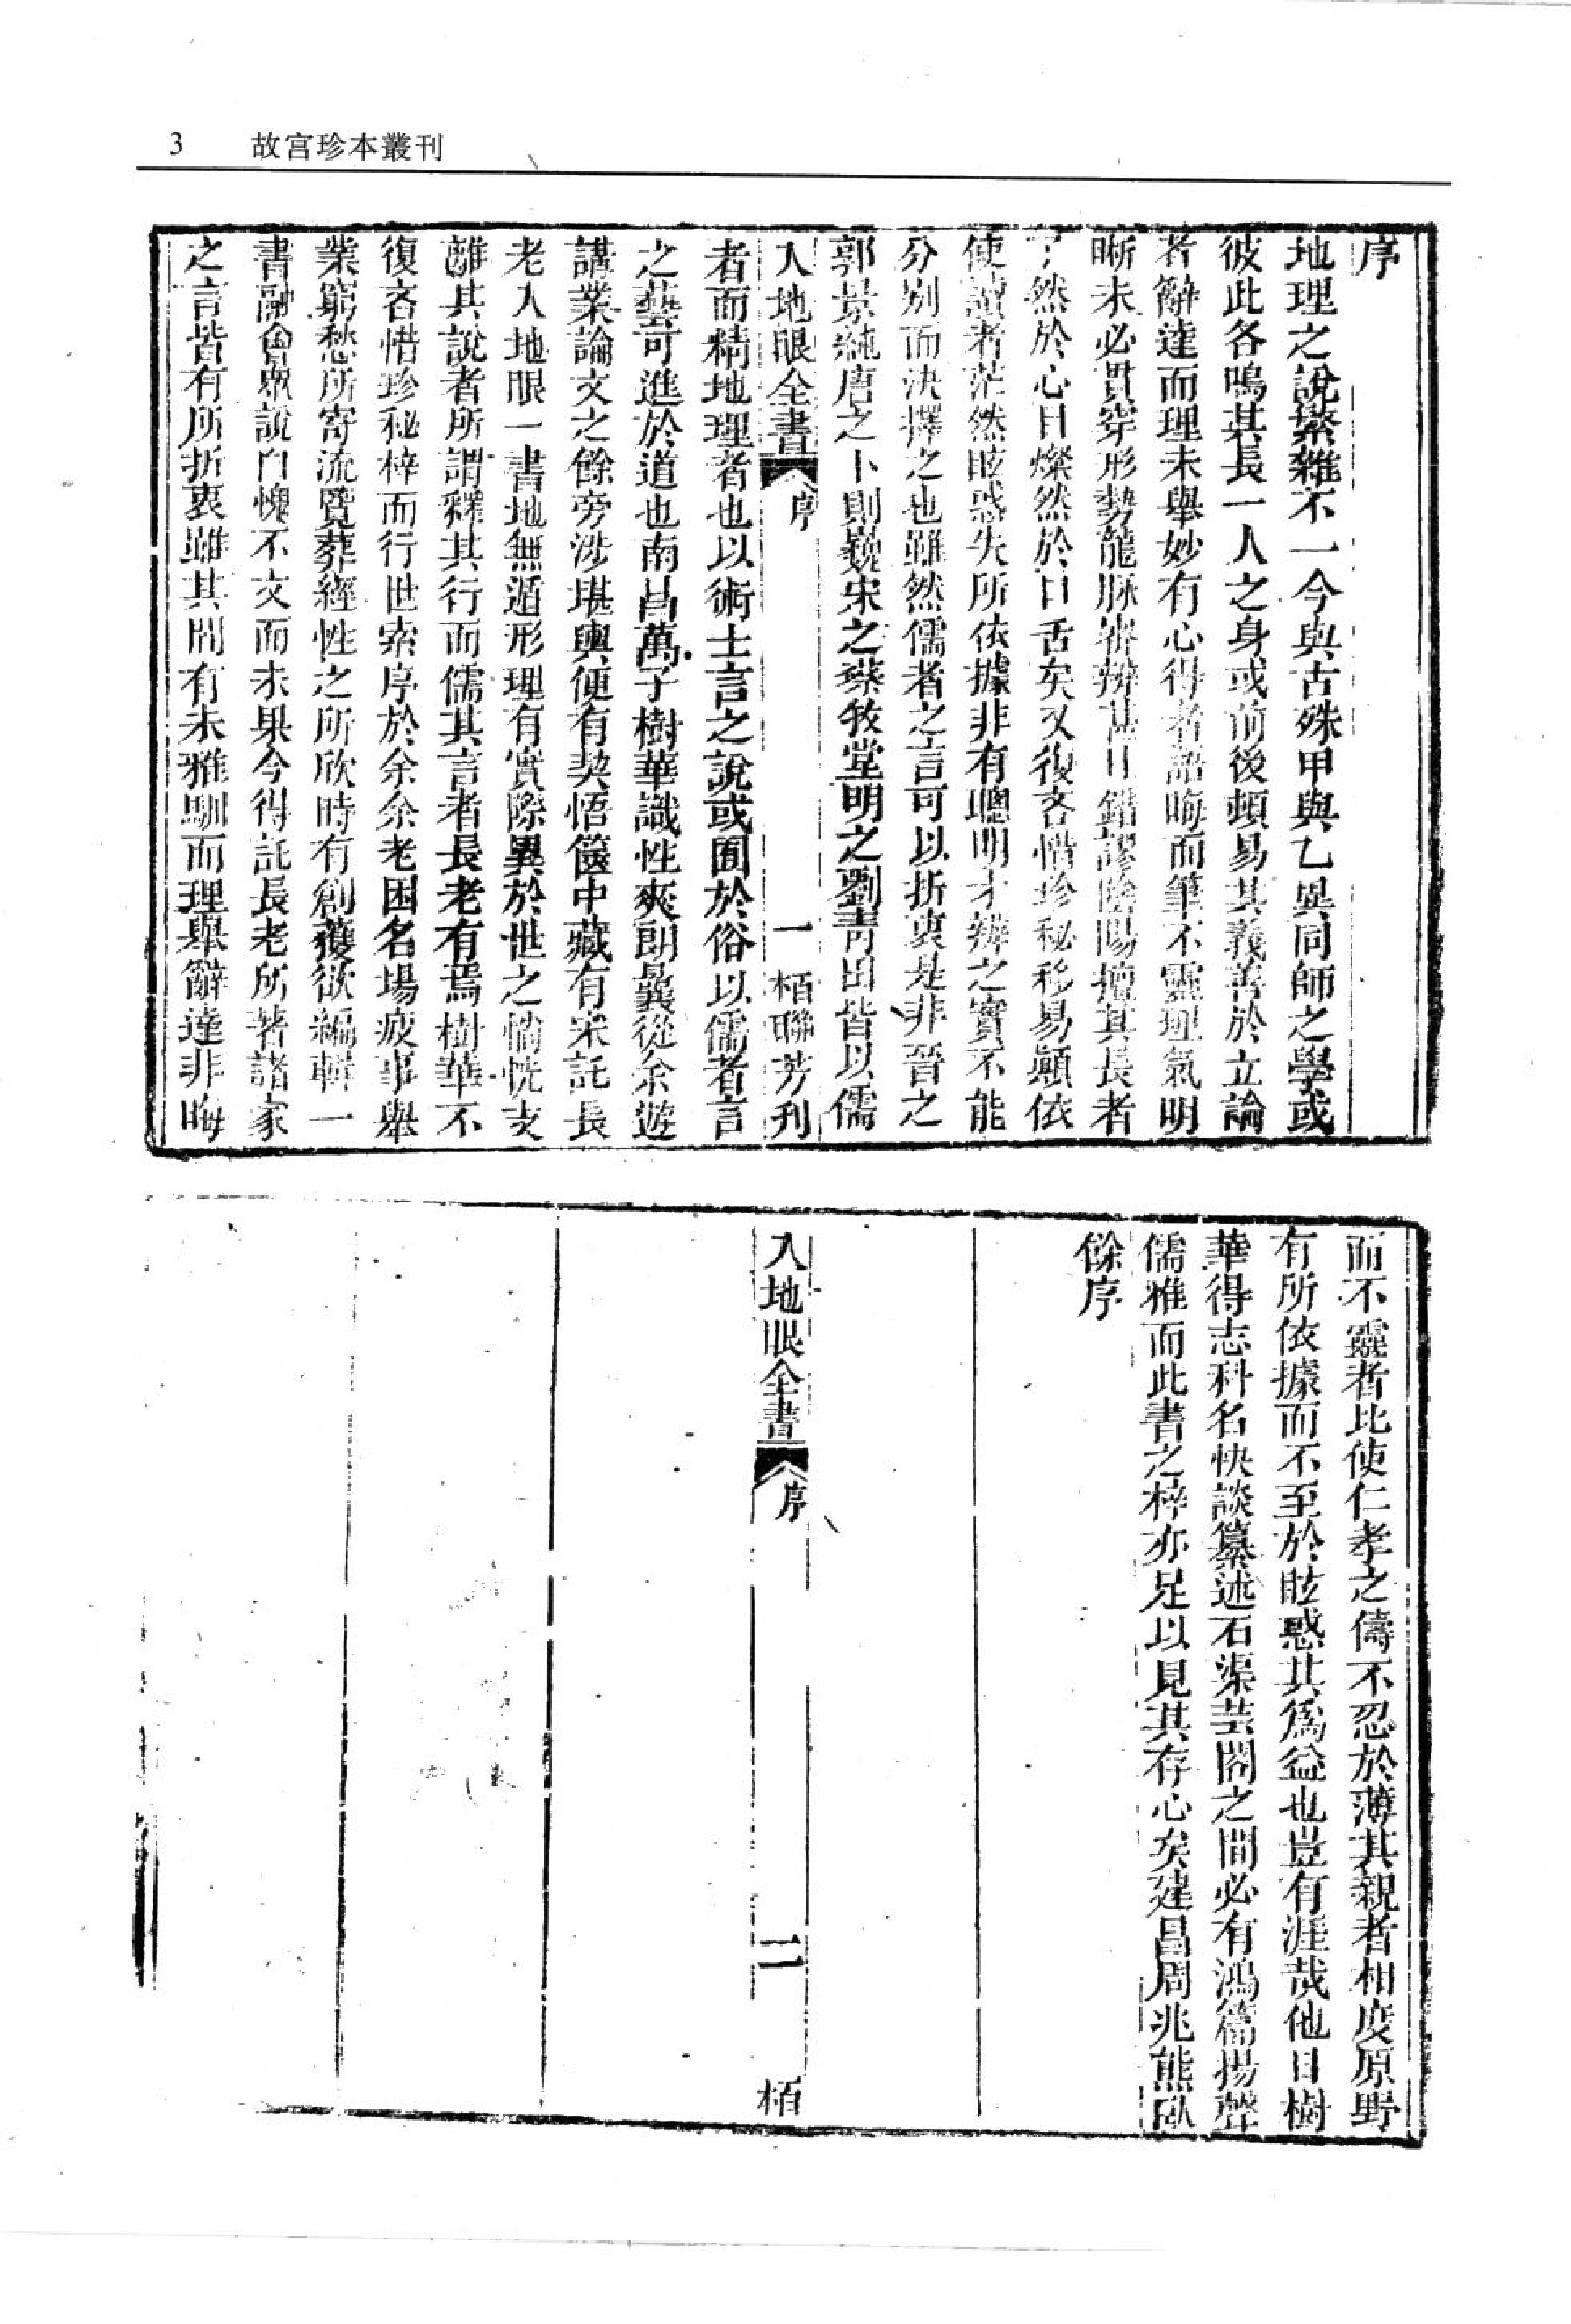 3 故宫珍本叢刊
序
地理之說繁雜不一今與古殊甲與乙異同師之學或
彼此各鳴其長一人之身或前後頓易其義善於立論
者辭達而理未舉妙有心得者語晦而筆不靈理氣明
晰未必貫穿形勢龍脉審辨甚且錯謬陰陽擅其長者
了然於心目燦然於口舌矣又復吝惜珍秘移易顛依
使讀者茫然眩惑失所依據非有聰明才辨之實不能
分別而決擇之也雖然儒者之言可以折衷是非晉之
郭景純唐之卜則巍宋之蔡牧堂明之劉青田皆以儒
入地眼全書 序 一 栢聯芳刊
者而精地理者也以術士言之說或囿於俗以儒者言
之藝可進於道也南昌萬子樹華識性爽朗曩從余遊
講業論文之餘旁涉堪輿便有契悟篋中藏有宋託長
老入地眼一書地無遁形理有實際異於世之惝恍支
離其說者所謂釋其行而儒其言者長老有焉樹華不
復吝惜珍秘梓而行世索序於余余老困名場疲事舉
業窮愁所寄流覽葬經性之所欣時有創獲欲編輯一
書融會眾說自愧不文而未果今得託長老所著諸家
之言皆有所折衷雖其間有未雅馴而理舉辭達非晦
而不靈者比使仁孝之儔不忍於薄其親者相度原野
有所依據而不至於眩惑其爲益也豈有涯哉他日樹
華得志科名快談纂述石渠芸閣之間必有鴻篇揚聲
儒雅而此書之梓亦足以見其存心矣建昌周兆熊臥
餘序
入地眼全書 序 二 栢